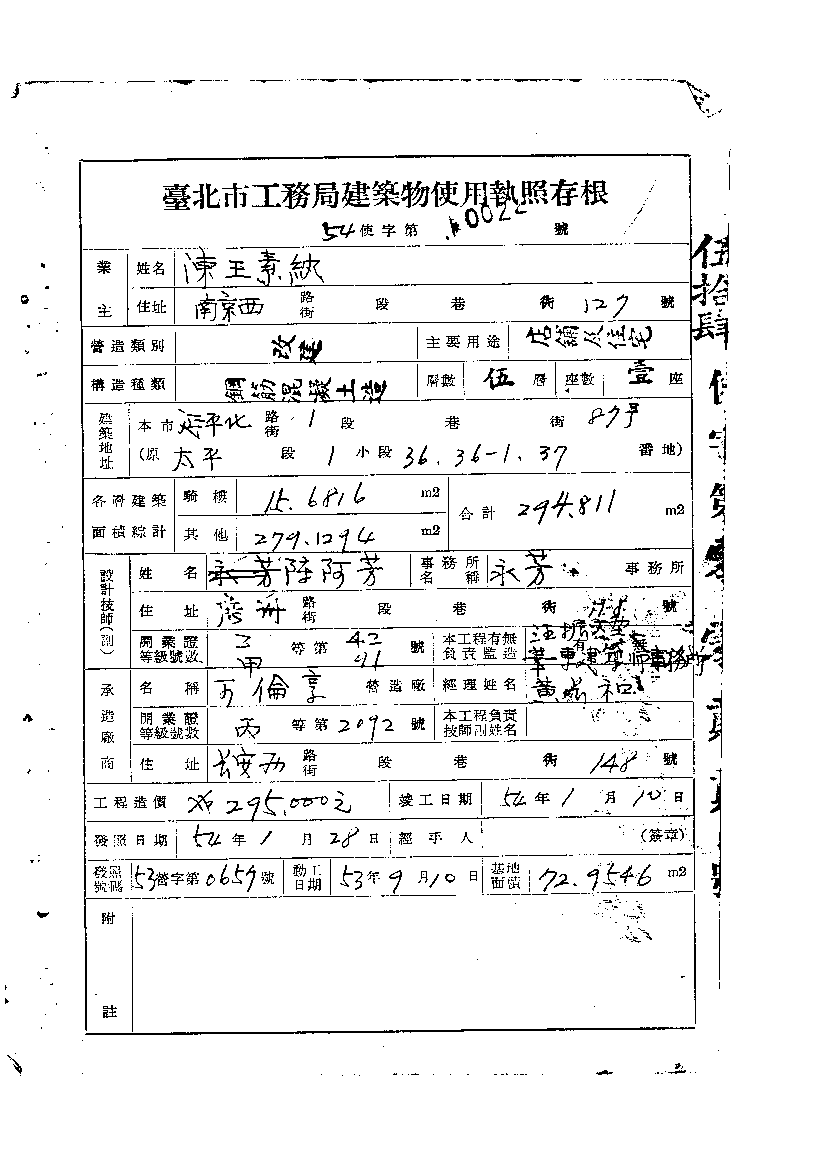 臺北市工務局建築物使用執照存根
54使字第 10022 號
業主 姓名 陳王素納
住址 南京西 路街 段 巷 街 127 號
營造類別 改建 主要用途 店鋪及住宅
構造種類 鋼筋混凝土造 層數 伍 層 座數 壹 座
建築地址 本市 延平北 路街 1 段 巷 街 87号
(原 太平 段 1 小段 36.36-1.37 番地)
各層建築面積綜計 騎樓 15.6816 m2 合計 294.811 m2
其他 279.1294 m2
設計技師(副) 姓名 陳阿芳 事務所名稱 永芳 事務所
住址 路街 段 巷 街 號
開業證等級號數 甲 等第 42 91 號 本工程有無負責監造
承造廠商 名稱 營造廠 經理姓名
開業證等級號數 丙 等第 2092 號 本工程負責技師副姓名
住址 長安西 路街 段 巷 街 148 號
工程造價 295,000元 竣工日期 54年1月10日
發照日期 54年1月28日 經手人 (簽章)
發照號碼 53營字第0657號 動工日期 53年9月10日 基地面積 72.9546 m2
附註
伍拾肆使字第